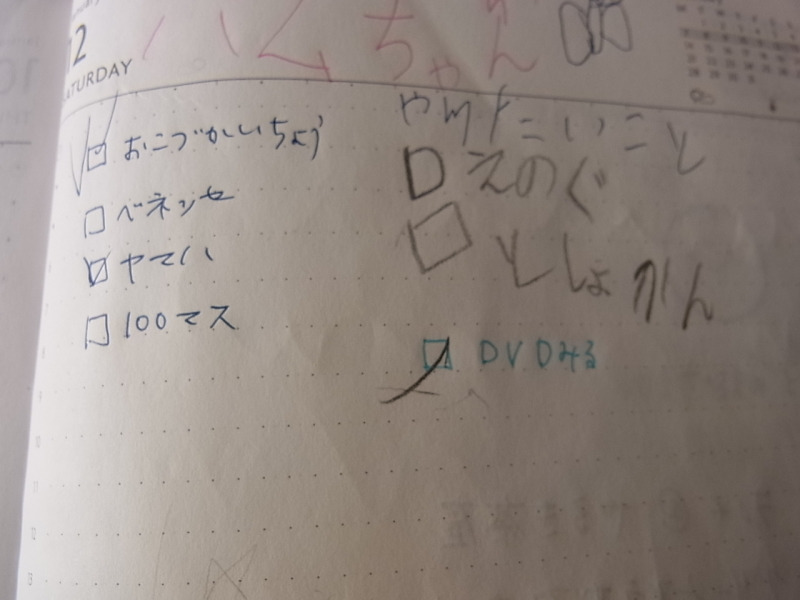 12
SATURDAY
ハムちゃん
おこづかいちょう
ベネッセ
ヤマハ
100マス
やりたいこと
えのぐ
としょかん
DVDみる